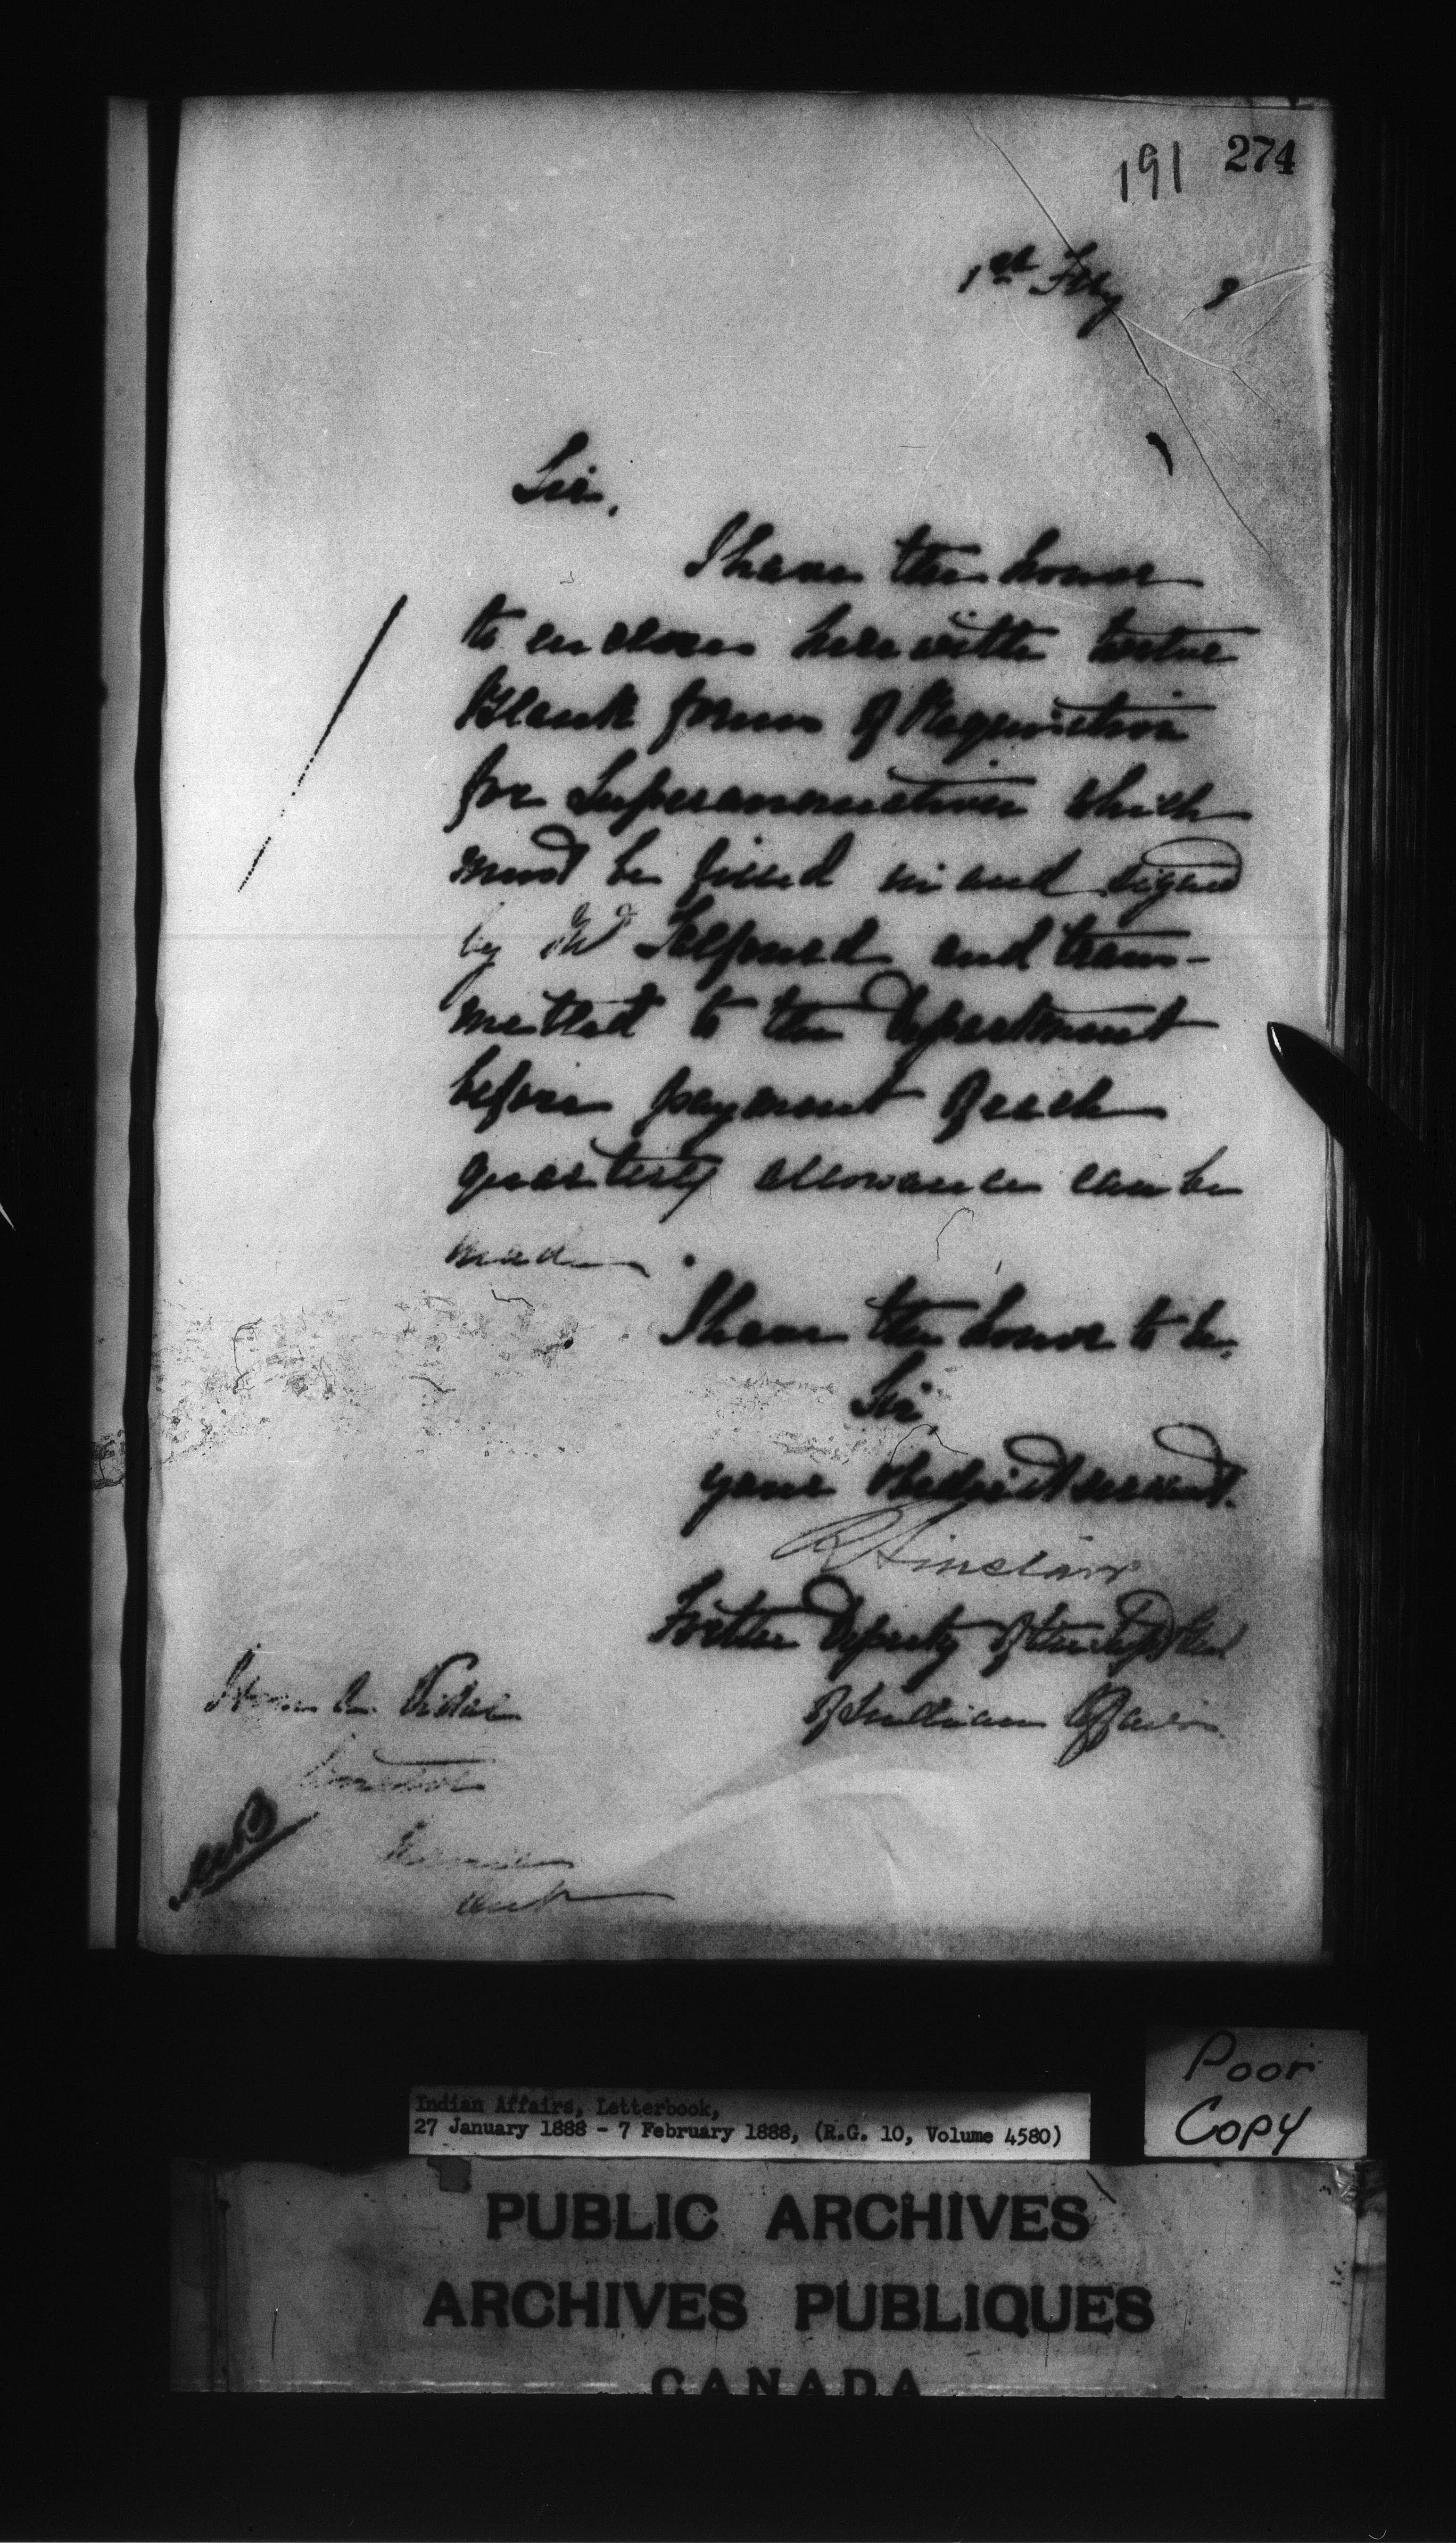 191 274
1st Feby 8
Sir,
I have the honor
to enclose herewith twelve
Blank forms of Requisition
for Superannuation which
must be filled in and signed
by Mr Talfourd and trans-
mitted to the Department
before payment of each
quarterly allowance can be
made.
I have the honor to be,
Sir
your obedient servant.
R Sinclair
For the Deputy of the Supt Genl
of Indian Affairs
Honble A. Vidal
Senator
Sarnia
Ont
Indian Affairs, Letterbook,
27 January 1888 - 7 February 1888, (R.G. 10, Volume 4580)
Poor
Copy
PUBLIC ARCHIVES
ARCHIVES PUBLIQUES
CANADA